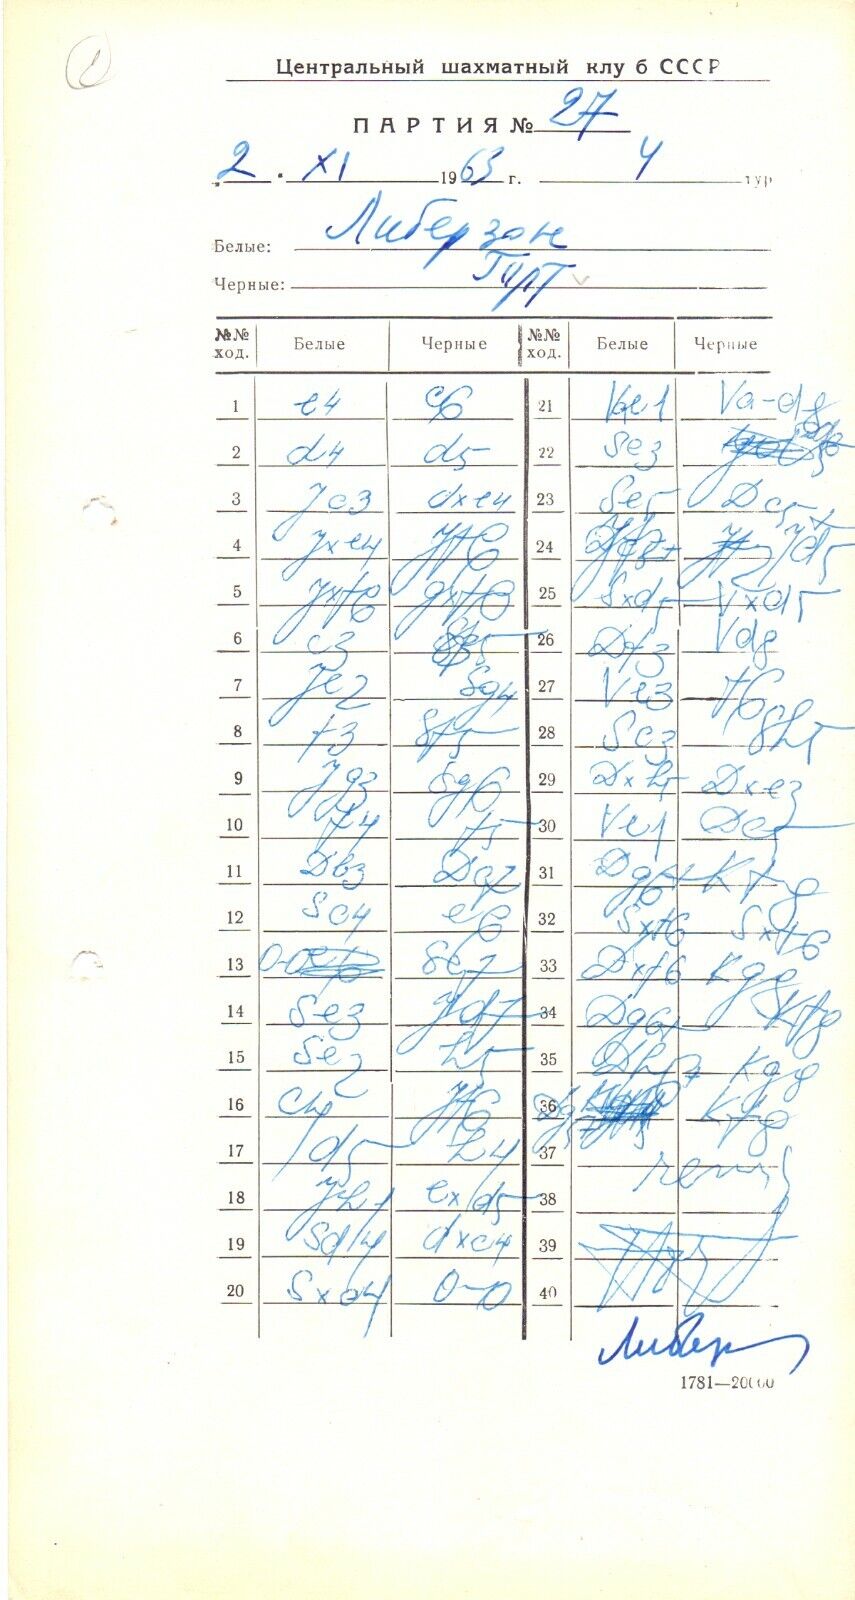 1
Центральный шахматный клу б СССР
ПАРТИЯ № 27
„2 . XI 1963 г. 4 тур
Белые: Либерзон
Черные: Горт
№№ ход. Белые Черные №№ ход. Белые Черные
1 e4 c6 21 Ve1 Va-d8
2 d4 d5 22 Se3
3 Jc3 dxe4 23 Se5 Dc5+
4 Jxe4 Jf6 24 Jd5
5 Jxf6 gxf6 25 Sxd5 Vxd5
6 c3 26 Df3 Vd8
7 Je2 Sg4 27 Ve3 f6
8 f3 Sf5 28 Sc3 Sh5
9 Jg3 Sg6 29 Dxh5 Dxe3
10 f4 f5 30 Ve1 Dc5
11 Db3 Dc7 31 Dg6+ Kf8
12 Sc4 e6 32 Sxf6 Sxf6
13 0-0 Se7 33 Dxf6 Kg8
14 Se3 Jd7 34 Dg6+ Kf8
15 Se2 h5 35 Dh7 Kg8
16 c4 Jf6 36 Kf8
17 d5 h4 37 remis
18 Jh1 exd5 38
19 Sd4 dxc4 39
20 Sxc4 0-0 40
Либер
1781—20000